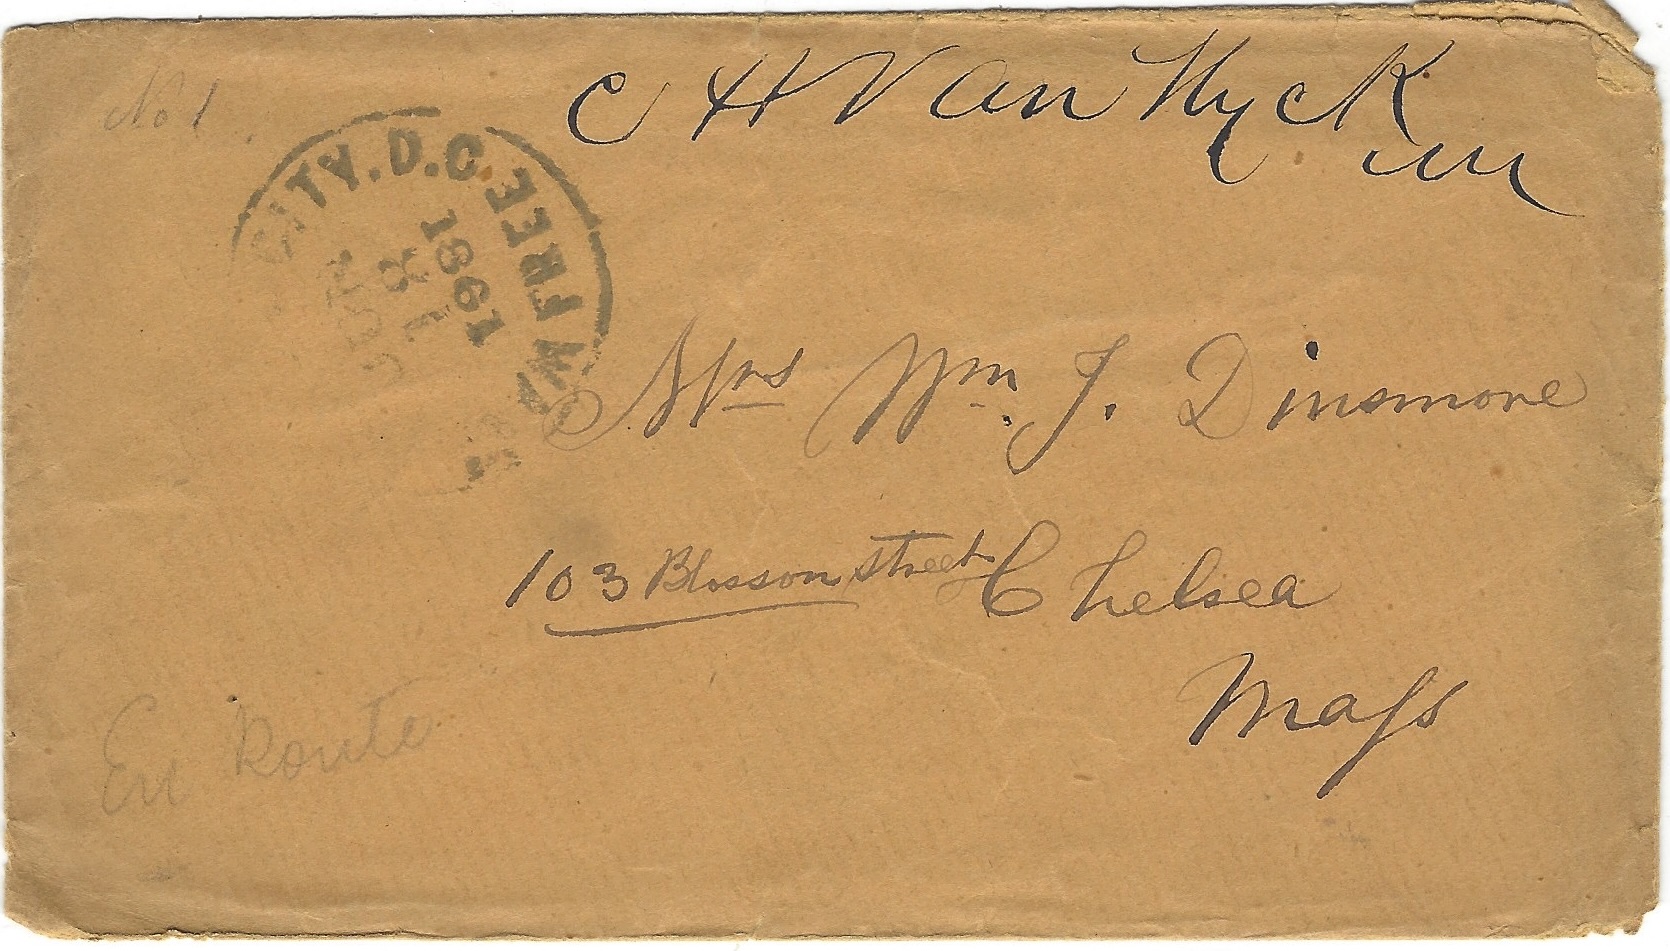 No 1
C H Van Wyck
MC
CITY. D.C. FREE
JUN
18
1861
Mrs Wm. J. Dinsmore
103 Blosson street Chelsea
Mass
En Route